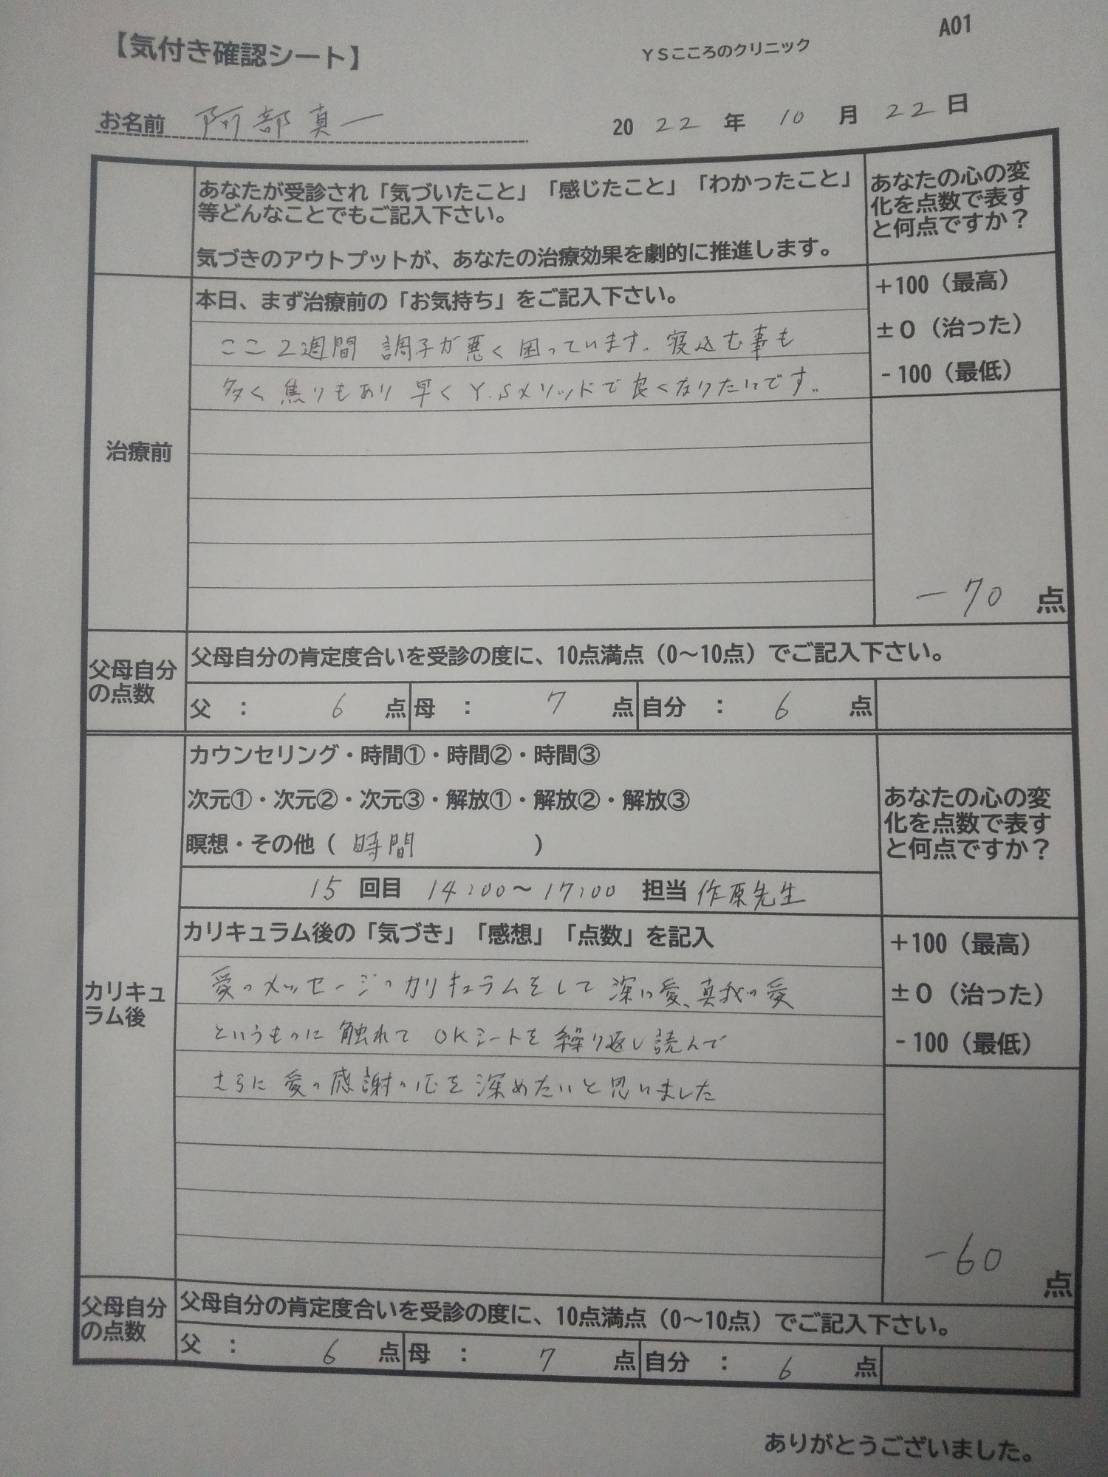 【気付き確認シート】
YSこころのクリニック
A01
お名前 阿部真一
2022年10月22日
あなたが受診され「気づいたこと」「感じたこと」「わかったこと」
等どんなことでもご記入下さい。
気づきのアウトプットが、あなたの治療効果を劇的に推進します。
あなたの心の変
化を点数で表す
と何点ですか？
治療前
本日、まず治療前の「お気持ち」をご記入下さい。
ここ2週間 調子が悪く困っています。寝込む事も
多く焦りもあり 早くY.Sメソッドで良くなりたいです。
+100（最高）
±0（治った）
-100（最低）
-70点
父母自分
の点数
父母自分の肯定度合いを受診の度に、10点満点（0～10点）でご記入下さい。
父 ： 6 点 母 ： 7 点 自分 ： 6 点
カリキュ
ラム後
カウンセリング・時間①・時間②・時間③
次元①・次元②・次元③・解放①・解放②・解放③
瞑想・その他（ 時間 ）
15 回目 14:00～17:00 担当 作原先生
あなたの心の変
化を点数で表す
と何点ですか？
カリキュラム後の「気づき」「感想」「点数」を記入
愛のメッセージのカリキュラムをして 深い愛、真我の愛
というものに触れて OKシートを繰り返し読んで
さらに愛の感謝の心を深めたいと思いました
+100（最高）
±0（治った）
-100（最低）
-60点
父母自分
の点数
父母自分の肯定度合いを受診の度に、10点満点（0～10点）でご記入下さい。
父 ： 6 点 母 ： 7 点 自分 ： 6 点
ありがとうございました。